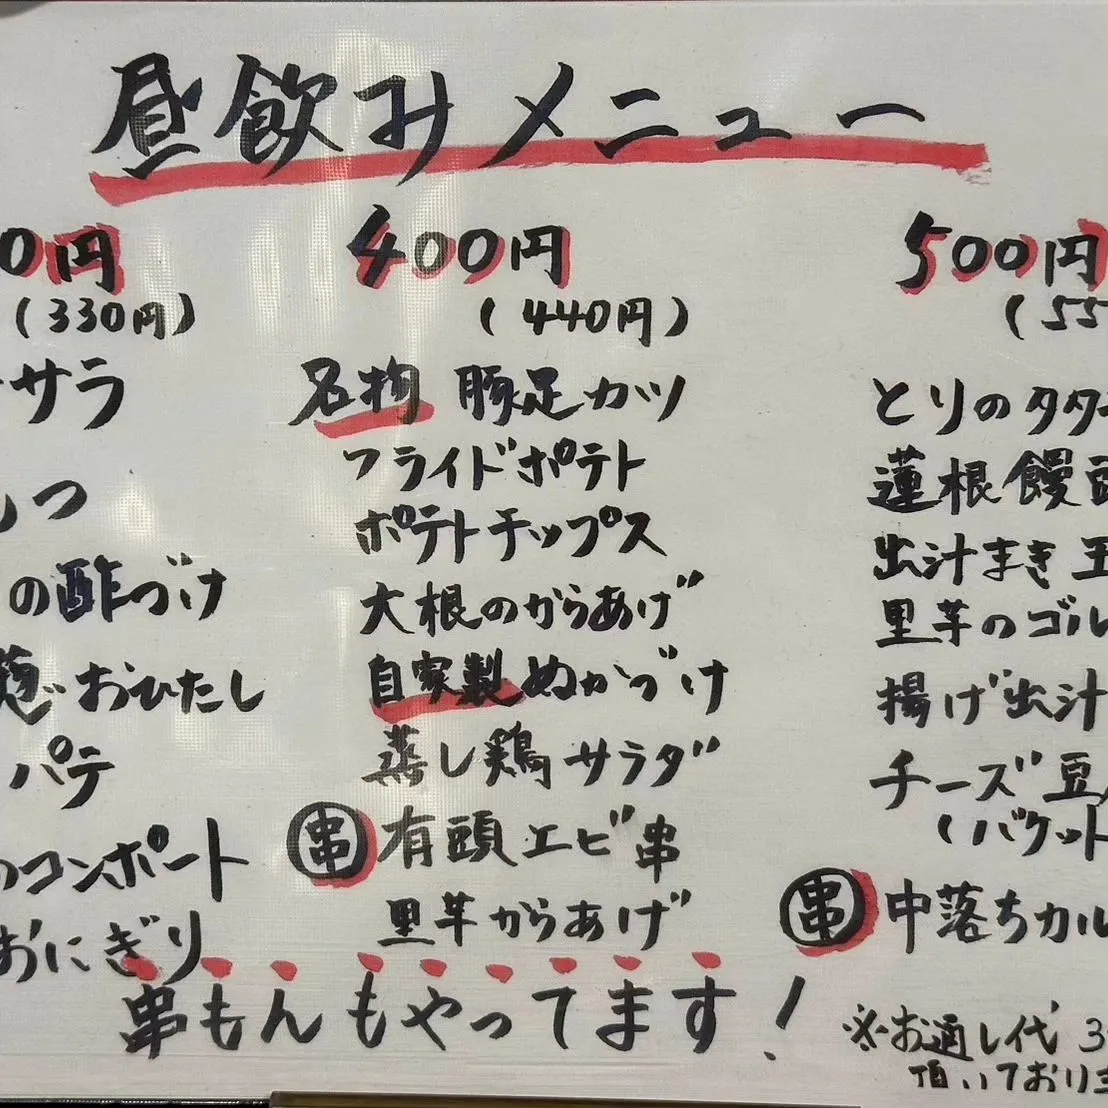 昼飲みメニュー
0円
(330円)
サラ
の酢づけ
おひたし
パテ
のコンポート
おにぎり
400円
(440円)
名物 豚足カツ
フライドポテト
ポテトチップス
大根のからあげ
自家製ぬかづけ
蒸し鶏サラダ
串 有頭エビ串
里芋からあげ
500円
(55
とりのタター
蓮根饅頭
出汁まき玉
里芋のゴル
揚げ出汁
チーズ豆
(バケット
串 中落ちカル
串もんもやってます!
※お通し代 3
頂いており